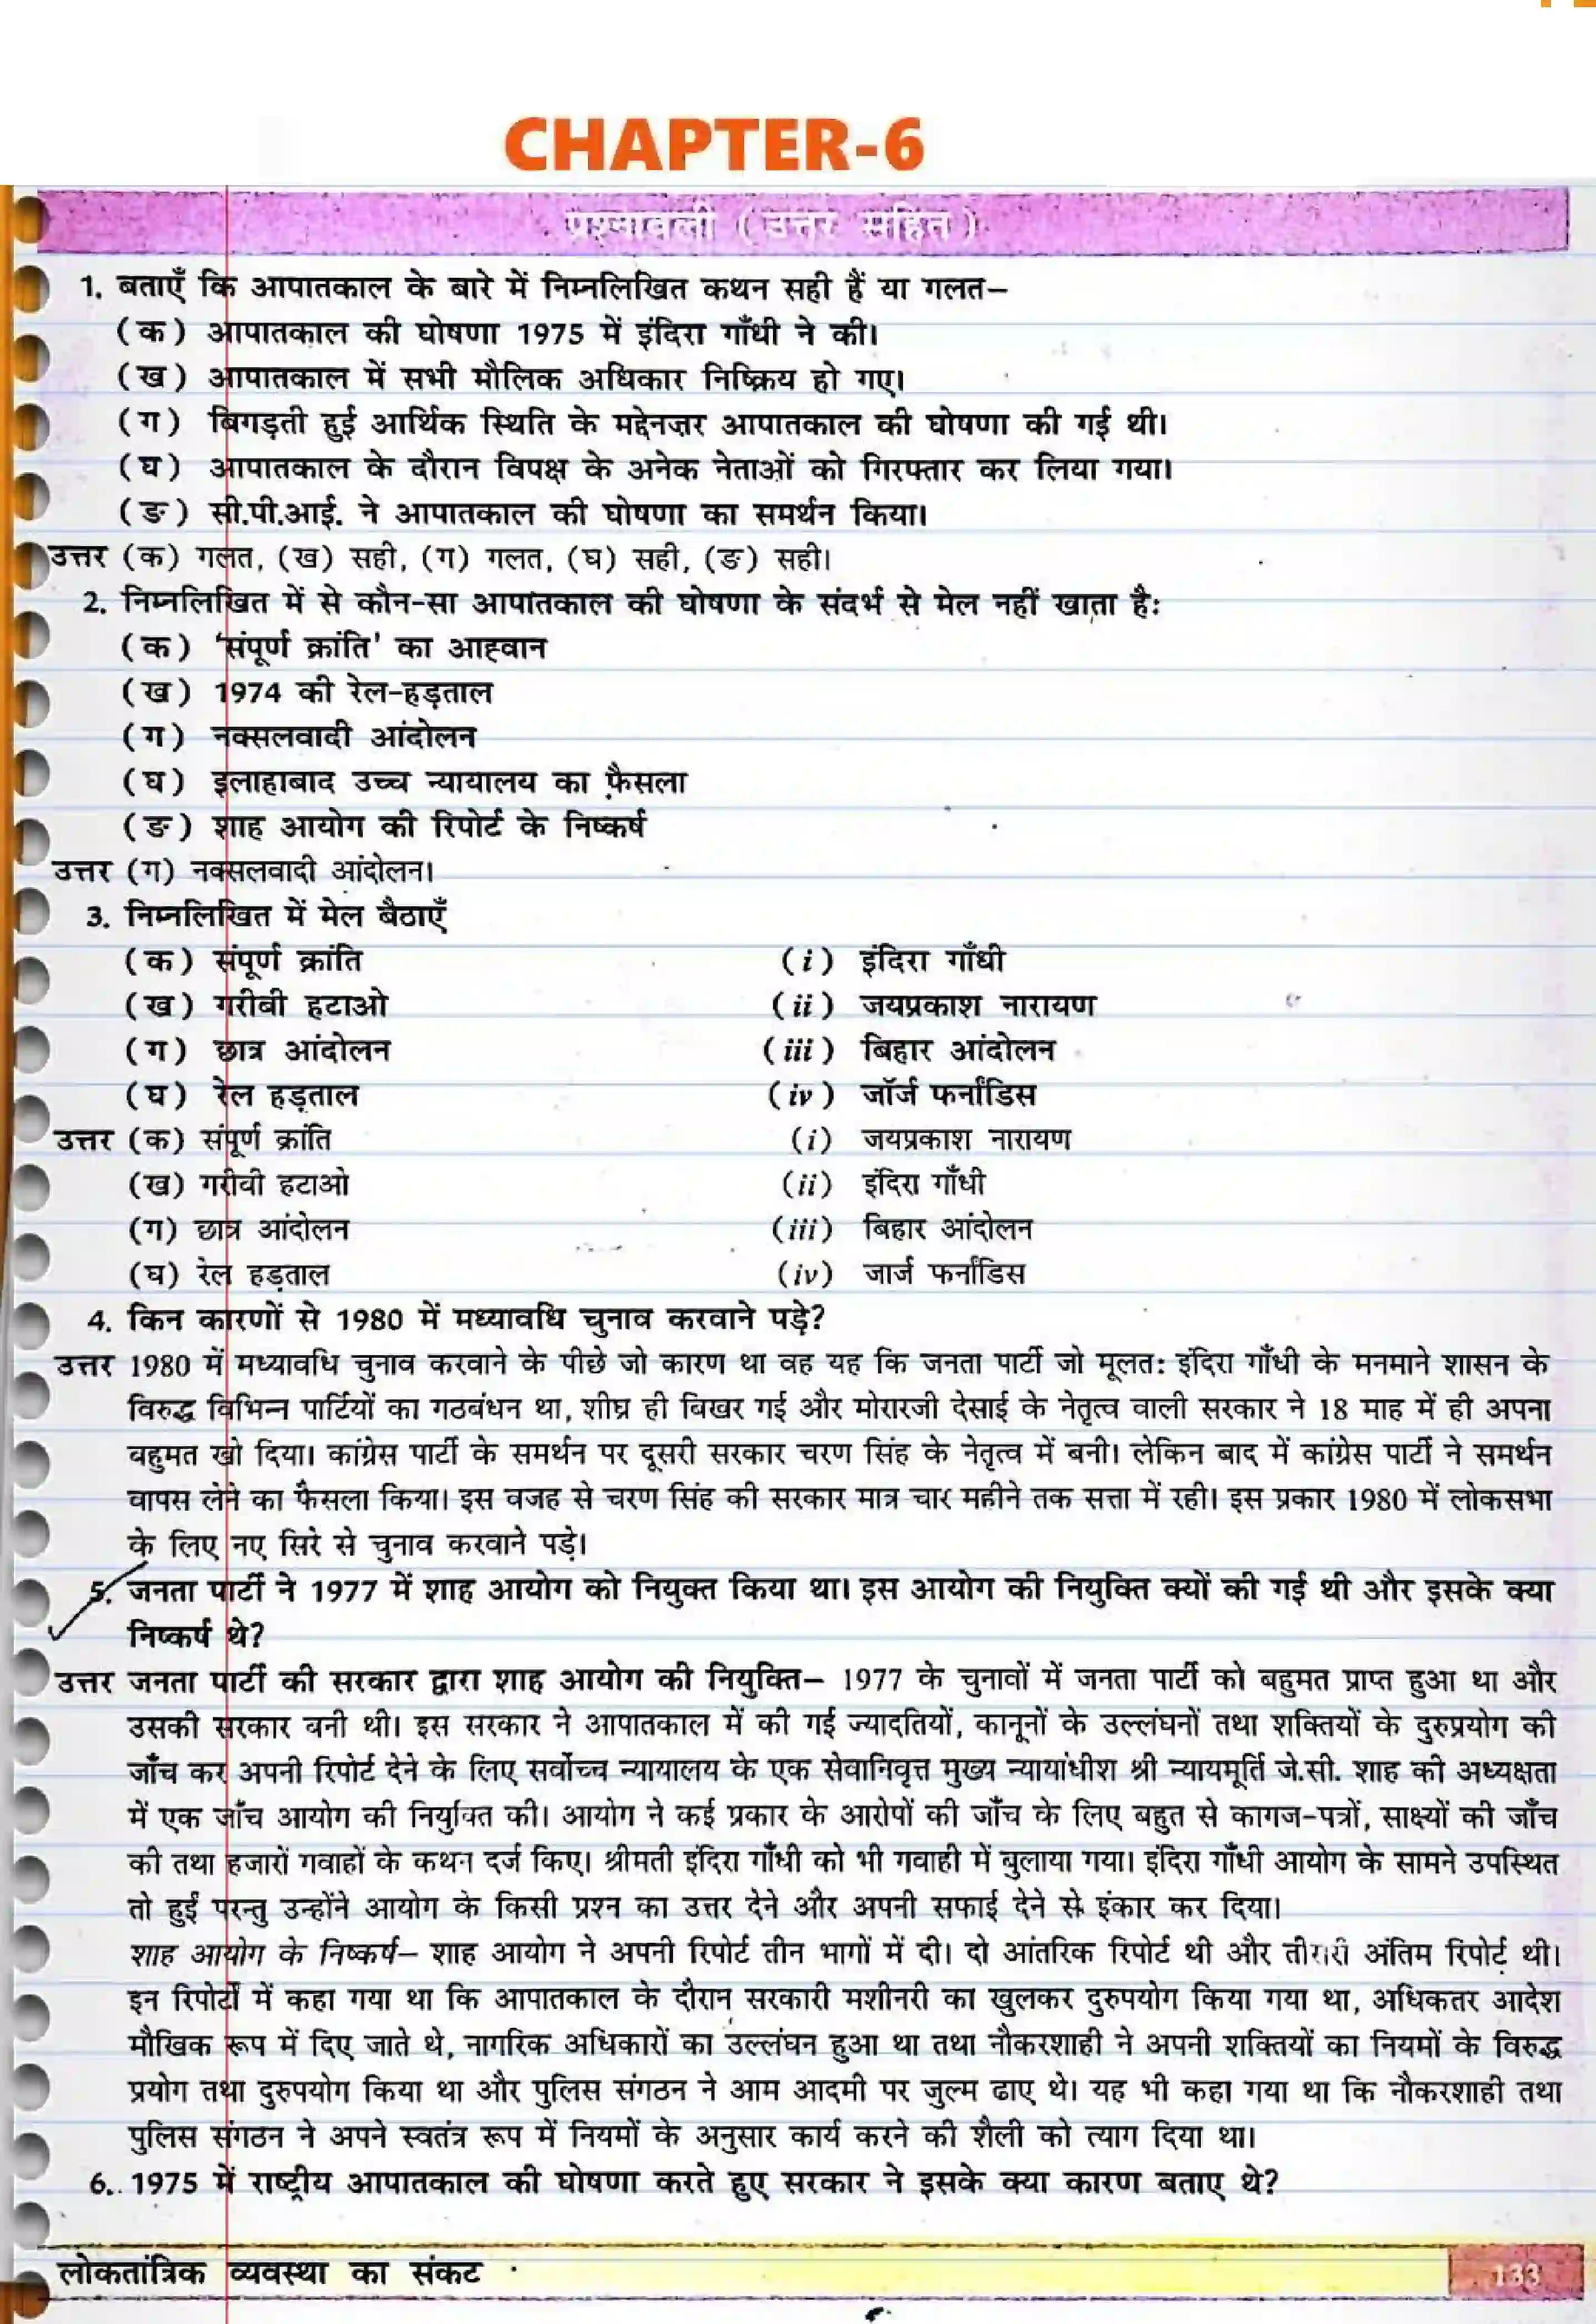 CHAPTER-6
प्रश्नावली ( उत्तर सहित )
1. बताएँ कि आपातकाल के बारे में निम्नलिखित कथन सही हैं या गलत–
(क) आपातकाल की घोषणा 1975 में इंदिरा गाँधी ने की।
(ख) आपातकाल में सभी मौलिक अधिकार निष्क्रिय हो गए।
(ग) बिगड़ती हुई आर्थिक स्थिति के मद्देनज़र आपातकाल की घोषणा की गई थी।
(घ) आपातकाल के दौरान विपक्ष के अनेक नेताओं को गिरफ्तार कर लिया गया।
(ङ) सी.पी.आई. ने आपातकाल की घोषणा का समर्थन किया।
उत्तर (क) गलत, (ख) सही, (ग) गलत, (घ) सही, (ङ) सही।
2. निम्नलिखित में से कौन-सा आपातकाल की घोषणा के संदर्भ से मेल नहीं खाता है:
(क) 'संपूर्ण क्रांति' का आह्वान
(ख) 1974 की रेल-हड़ताल
(ग) नक्सलवादी आंदोलन
(घ) इलाहाबाद उच्च न्यायालय का फ़ैसला
(ङ) शाह आयोग की रिपोर्ट के निष्कर्ष
उत्तर (ग) नक्सलवादी आंदोलन।
3. निम्नलिखित में मेल बैठाएँ
(क) संपूर्ण क्रांति (i) इंदिरा गाँधी
(ख) गरीबी हटाओ (ii) जयप्रकाश नारायण
(ग) छात्र आंदोलन (iii) बिहार आंदोलन
(घ) रेल हड़ताल (iv) जॉर्ज फर्नांडिस
उत्तर (क) संपूर्ण क्रांति (i) जयप्रकाश नारायण
(ख) गरीबी हटाओ (ii) इंदिरा गाँधी
(ग) छात्र आंदोलन (iii) बिहार आंदोलन
(घ) रेल हड़ताल (iv) जार्ज फर्नांडिस
4. किन कारणों से 1980 में मध्यावधि चुनाव करवाने पड़े?
उत्तर 1980 में मध्यावधि चुनाव करवाने के पीछे जो कारण था वह यह कि जनता पार्टी जो मूलत: इंदिरा गाँधी के मनमाने शासन के
विरुद्ध विभिन्न पार्टियों का गठबंधन था, शीघ्र ही बिखर गई और मोरारजी देसाई के नेतृत्व वाली सरकार ने 18 माह में ही अपना
बहुमत खो दिया। कांग्रेस पार्टी के समर्थन पर दूसरी सरकार चरण सिंह के नेतृत्व में बनी। लेकिन बाद में कांग्रेस पार्टी ने समर्थन
वापस लेने का फैसला किया। इस वजह से चरण सिंह की सरकार मात्र चार महीने तक सत्ता में रही। इस प्रकार 1980 में लोकसभा
के लिए नए सिरे से चुनाव करवाने पड़े।
5. जनता पार्टी ने 1977 में शाह आयोग को नियुक्त किया था। इस आयोग की नियुक्ति क्यों की गई थी और इसके क्या
निष्कर्ष थे?
उत्तर जनता पार्टी की सरकार द्वारा शाह आयोग की नियुक्ति– 1977 के चुनावों में जनता पार्टी को बहुमत प्राप्त हुआ था और
उसकी सरकार बनी थी। इस सरकार ने आपातकाल में की गई ज्यादतियों, कानूनों के उल्लंघनों तथा शक्तियों के दुरुप्रयोग की
जाँच कर अपनी रिपोर्ट देने के लिए सर्वोच्च न्यायालय के एक सेवानिवृत्त मुख्य न्यायांधीश श्री न्यायमूर्ति जे.सी. शाह की अध्यक्षता
में एक जाँच आयोग की नियुक्ति की। आयोग ने कई प्रकार के आरोपों की जाँच के लिए बहुत से कागज-पत्रों, साक्ष्यों की जाँच
की तथा हजारों गवाहों के कथन दर्ज किए। श्रीमती इंदिरा गाँधी को भी गवाही में बुलाया गया। इंदिरा गाँधी आयोग के सामने उपस्थित
तो हुईं परन्तु उन्होंने आयोग के किसी प्रश्न का उत्तर देने और अपनी सफाई देने से इंकार कर दिया।
शाह आयोग के निष्कर्ष– शाह आयोग ने अपनी रिपोर्ट तीन भागों में दी। दो आंतरिक रिपोर्ट थी और तीसरी अंतिम रिपोर्ट थी।
इन रिपोर्टों में कहा गया था कि आपातकाल के दौरान सरकारी मशीनरी का खुलकर दुरुपयोग किया गया था, अधिकतर आदेश
मौखिक रूप में दिए जाते थे, नागरिक अधिकारों का उल्लंघन हुआ था तथा नौकरशाही ने अपनी शक्तियों का नियमों के विरुद्ध
प्रयोग तथा दुरुपयोग किया था और पुलिस संगठन ने आम आदमी पर जुल्म ढाए थे। यह भी कहा गया था कि नौकरशाही तथा
पुलिस संगठन ने अपने स्वतंत्र रूप में नियमों के अनुसार कार्य करने की शैली को त्याग दिया था।
6. 1975 में राष्ट्रीय आपातकाल की घोषणा करते हुए सरकार ने इसके क्या कारण बताए थे?
लोकतांत्रिक व्यवस्था का संकट 133